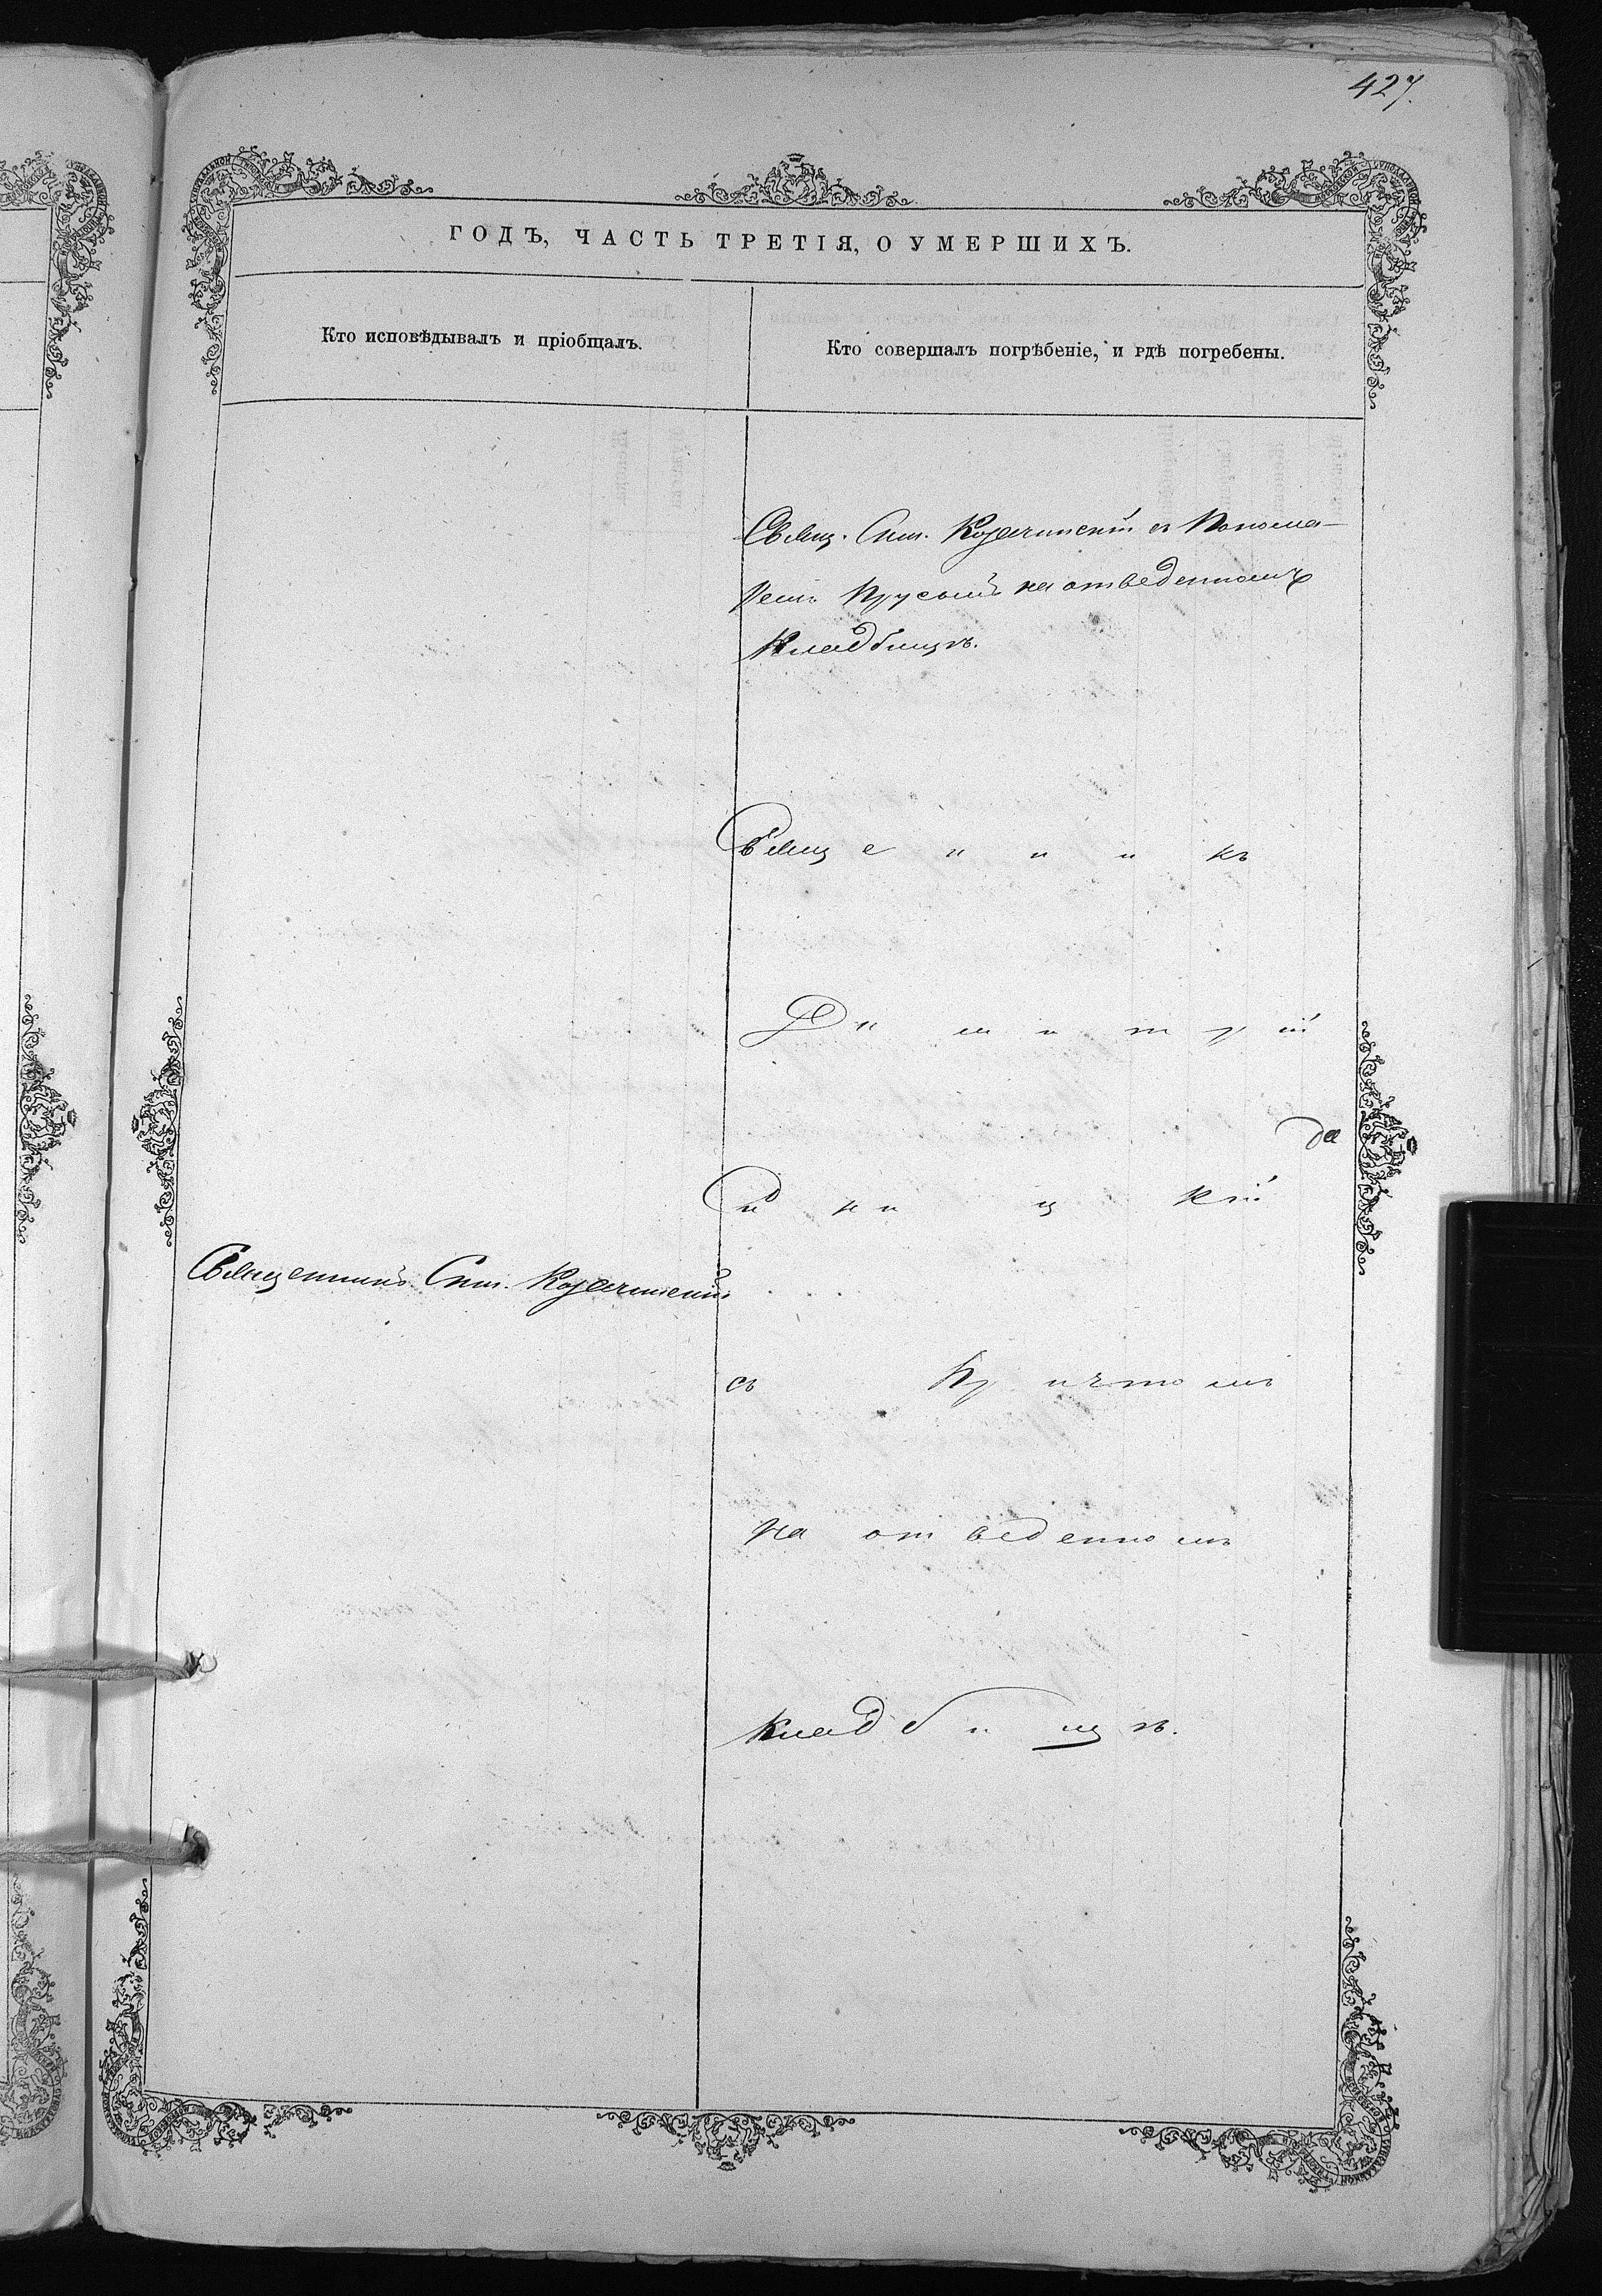 427.
ГОДЪ, ЧАСТЬ ТРЕТІЯ, О УМЕРШИХЪ.
Кто исповѣдывалъ и пріобщалъ.
Кто совершалъ погрѣбеніе, и гдѣ погребены.
Свящ. Сим. Козачинскій съ Понома-
ремъ на отведенномъ
Кладбищѣ.
Священникъ
Димитрій
да
Священникъ Сим. Козачинскій
съ Причтомъ
на отведенномъ
кладбищѣ.